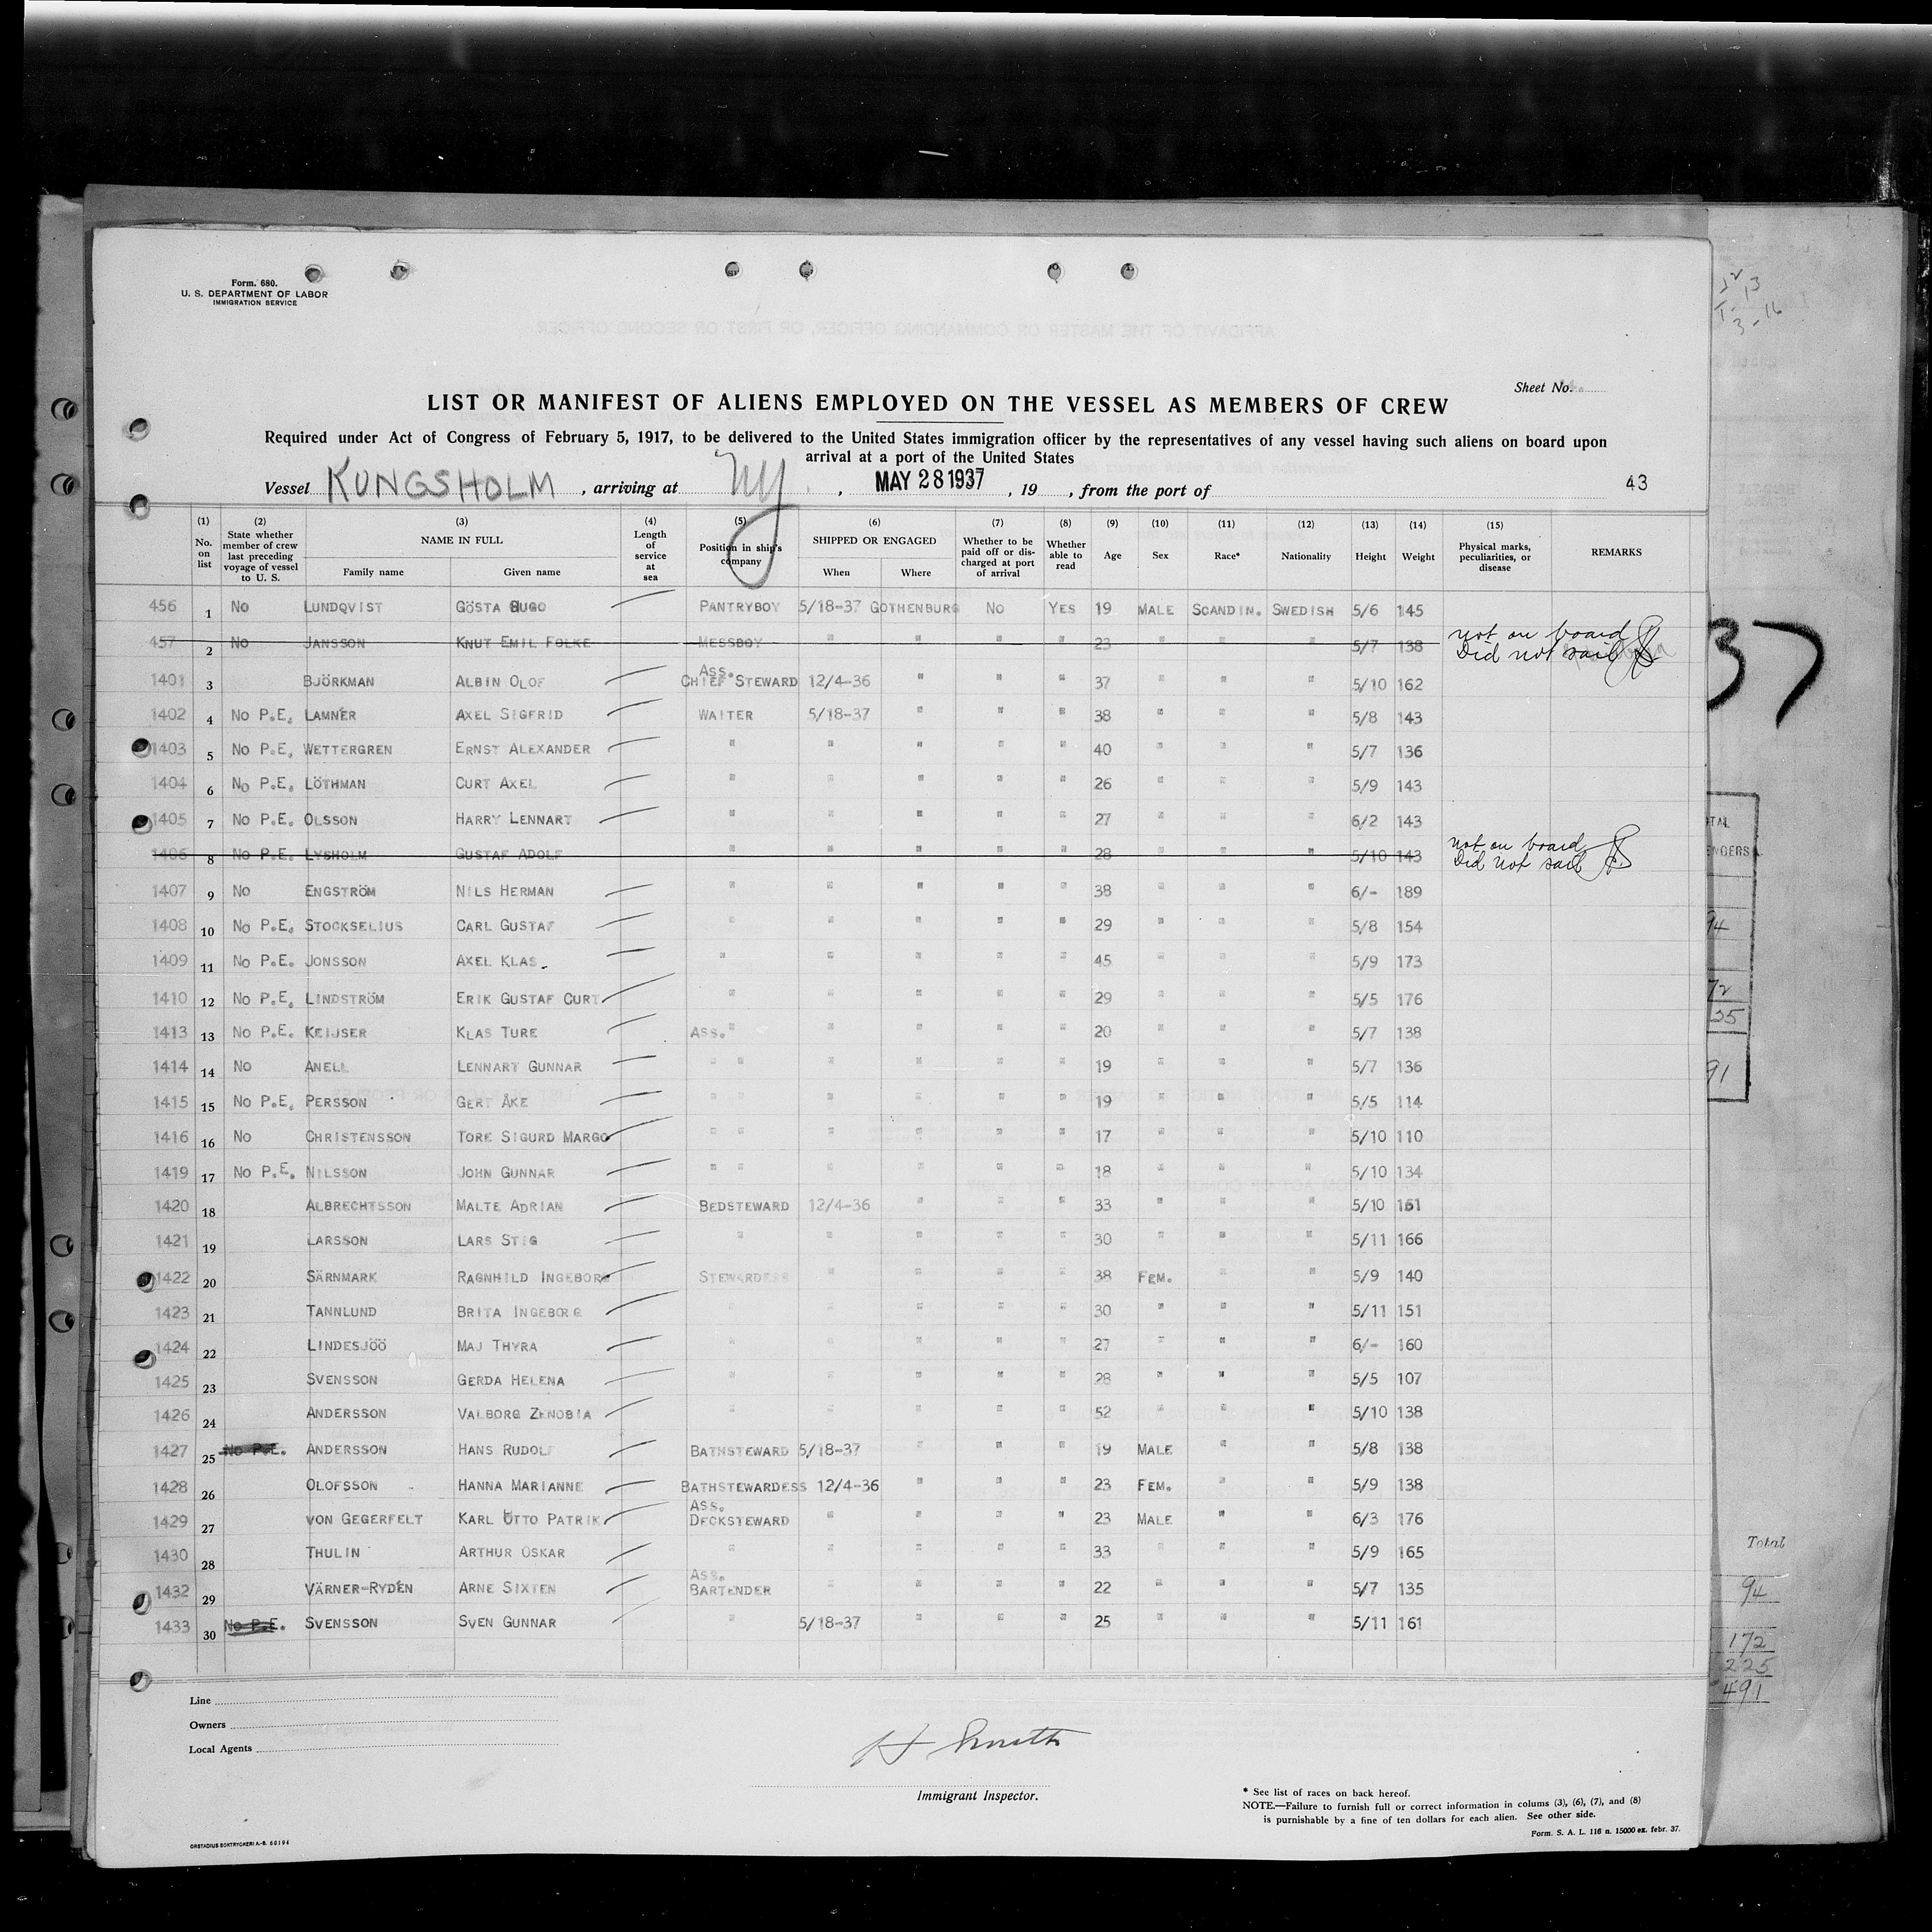 Form. 680.
U. S. DEPARTMENT OF LABOR
IMMIGRATION SERVICE
Sheet No.
LIST OR MANIFEST OF ALIENS EMPLOYED ON THE VESSEL AS MEMBERS OF CREW
Required under Act of Congress of February 5, 1917, to be delivered to the United States immigration officer by the representatives of any vessel having such aliens on board upon
arrival at a port of the United States
Vessel KUNGSHOLM, arriving at NY, MAY 28 1937, 19, from the port of 43
(1) (2) (3) (4) (5) (6) (7) (8) (9) (10) (11) (12) (13) (14) (15)
No. on list | State whether member of crew last preceding voyage of vessel to U. S. | NAME IN FULL Family name Given name | Length of service at sea | Position in ship's company | SHIPPED OR ENGAGED When Where | Whether to be paid off or discharged at port of arrival | Whether able to read | Age | Sex | Race* | Nationality | Height | Weight | Physical marks, peculiarities, or disease | REMARKS
456 1 No LUNDQVIST GÖSTA HUGO PANTRYBOY 5/18-37 GOTHENBURG No YES 19 MALE SCANDIN. SWEDISH 5/6 145
457 2 No JANSSON KNUT EMIL FOLKE MESSBOY " " " " 23 " " " 5/7 138 not on board Did not sail
1401 3 BJÖRKMAN ALBIN OLOF ASS. CHIEF STEWARD 12/4-36 " " " 37 " " " 5/10 162
1402 4 No P.E. LAMNER AXEL SIGFRID WAITER 5/18-37 " " " 38 " " " 5/8 143
1403 5 No P.E. WETTERGREN ERNST ALEXANDER " " " " " 40 " " " 5/7 136
1404 6 No P.E. LÖTHMAN CURT AXEL " " " " " 26 " " " 5/9 143
1405 7 No P.E. OLSSON HARRY LENNART " " " " " 27 " " " 6/2 143
1406 8 No P.E. LYSHOLM GUSTAF ADOLF " " " " " 28 " " " 5/10 143 not on board Did not sail
1407 9 No ENGSTRÖM NILS HERMAN " " " " " 38 " " " 6/- 189
1408 10 No P.E. STOCKSELIUS CARL GUSTAF " " " " " 29 " " " 5/8 154
1409 11 No P.E. JONSSON AXEL KLAS. " " " " " 45 " " " 5/9 173
1410 12 No P.E. LINDSTRÖM ERIK GUSTAF CURT " " " " " 29 " " " 5/5 176
1413 13 No P.E. KEIJSER KLAS TURE ASS. " " " " " 20 " " " 5/7 138
1414 14 No ANELL LENNART GUNNAR " " " " " " 19 " " " 5/7 136
1415 15 No P.E. PERSSON GERT ÅKE " " " " " " 19 " " " 5/5 114
1416 16 No CHRISTENSSON TORE SIGURD MARGO " " " " " " 17 " " " 5/10 110
1419 17 No P.E. NILSSON JOHN GUNNAR " " " " " " 18 " " " 5/10 134
1420 18 ALBRECHTSSON MALTE ADRIAN BEDSTEWARD 12/4-36 " " " 33 " " " 5/10 151
1421 19 LARSSON LARS STIG " " " " " 30 " " " 5/11 166
1422 20 SÄRNMARK RAGNHILD INGEBORG STEWARDESS " " " " 38 FEM. " " 5/9 140
1423 21 TANNLUND BRITA INGEBORG " " " " " 30 " " " 5/11 151
1424 22 LINDESJÖÖ MAJ THYRA " " " " " 27 " " " 6/- 160
1425 23 SVENSSON GERDA HELENA " " " " " 28 " " " 5/5 107
1426 24 ANDERSSON VALBORG ZENOBIA " " " " " 52 " " " 5/10 138
1427 25 No P.E. ANDERSSON HANS RUDOLF BATHSTEWARD 5/18-37 " " " 19 MALE " " 5/8 138
1428 26 OLOFSSON HANNA MARIANNE BATHSTEWARDESS 12/4-36 " " " 23 FEM. " " 5/9 138
1429 27 VON GEGERFELT KARL OTTO PATRIK ASS. DECKSTEWARD " " " " 23 MALE " " 6/3 176
1430 28 THULIN ARTHUR OSKAR " " " " " 33 " " " 5/9 165
1432 29 VÄRNER-RYDÉN ARNE SIXTEN ASS. BARTENDER " " " " 22 " " " 5/7 135
1433 30 No P.E. SVENSSON SVEN GUNNAR " 5/18-37 " " " 25 " " " 5/11 161
Line
Owners
Local Agents
H Smith
Immigrant Inspector.
* See list of races on back hereof.
NOTE.—Failure to furnish full or correct information in colums (3), (6), (7), and (8)
is purnishable by a fine of ten dollars for each alien. See other side.
Form. S. A. L. 116 n. 15000 ex. febr. 37.
ORSTADIUS BOKTRYCKERI A.-B. 60194
37
Total
94
172
225
491